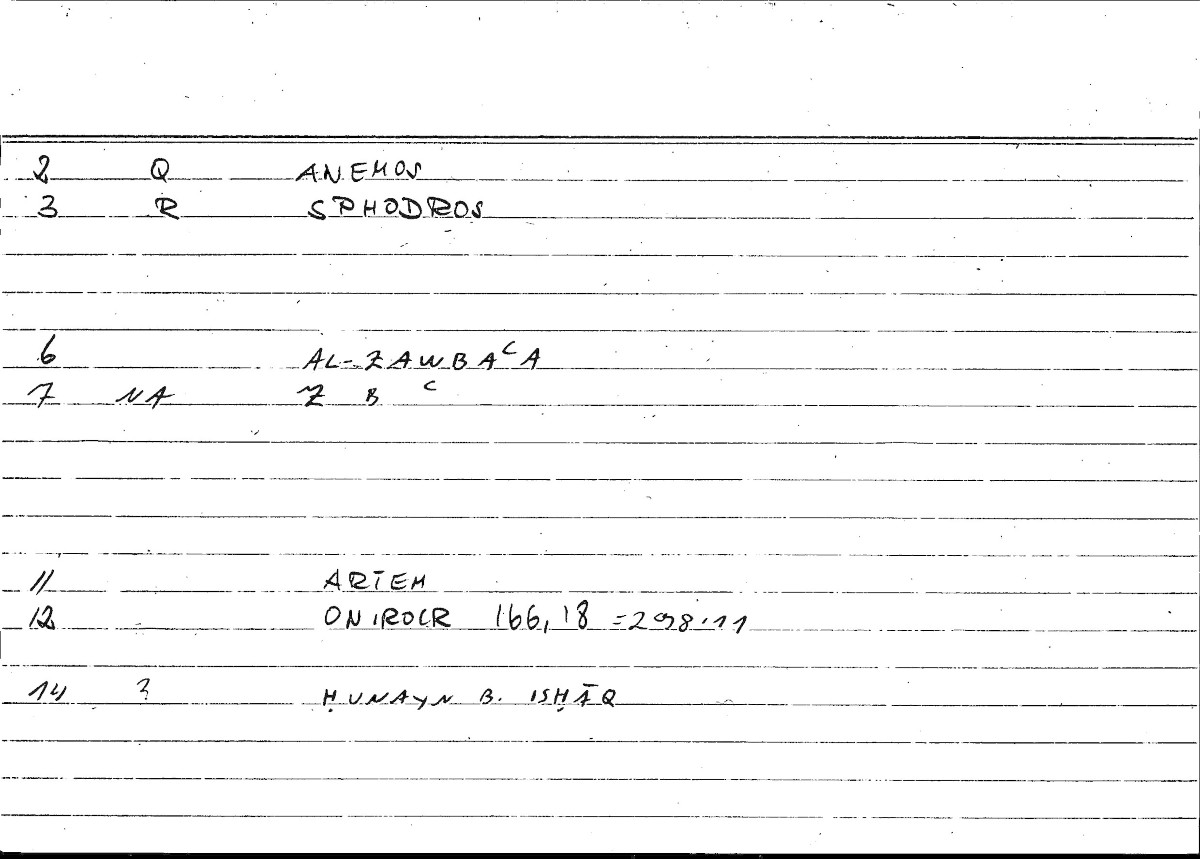 2 Q ANEMOS
3 R SPHODROS
6 AL-ZAWBAʿA
7 NA Z B ʿ
11 ARTEM
12 ONIROCR 166,18 =298.11
14 ? ḤUNAYN B. ISḤĀQ